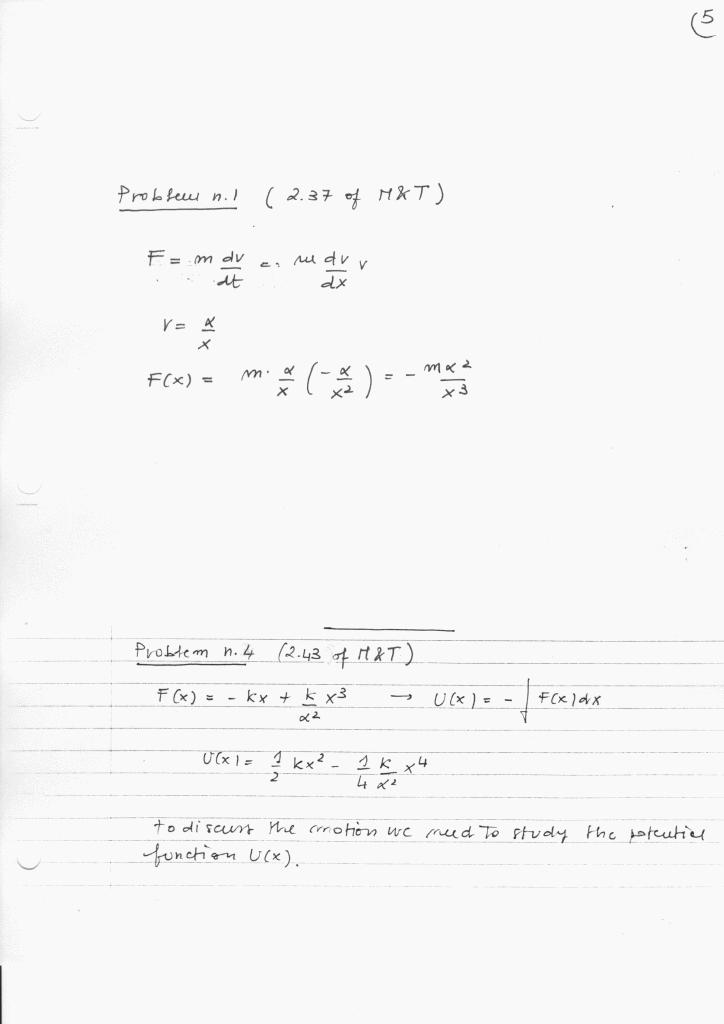 (5
Problem n.1 (2.37 of M&T)
F = m dv/dt = m dv/dx v
v = α/x
F(x) = m · α/x (-α/x²) = - mα²/x³
Problem n.4 (2.43 of M&T)
F(x) = - kx + k/α² x³ → U(x) = - ∫ F(x)dx
U(x) = 1/2 kx² - 1/4 k/α² x⁴
to discuss the motion we need to study the potential
function U(x).